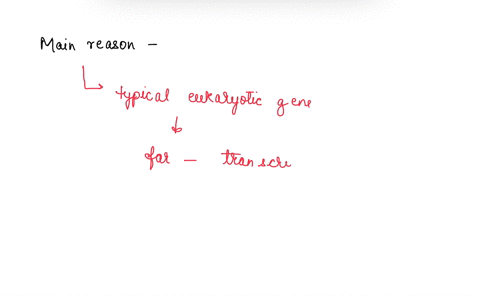 Main reason -
typical eukaryotic gene
for - transcri